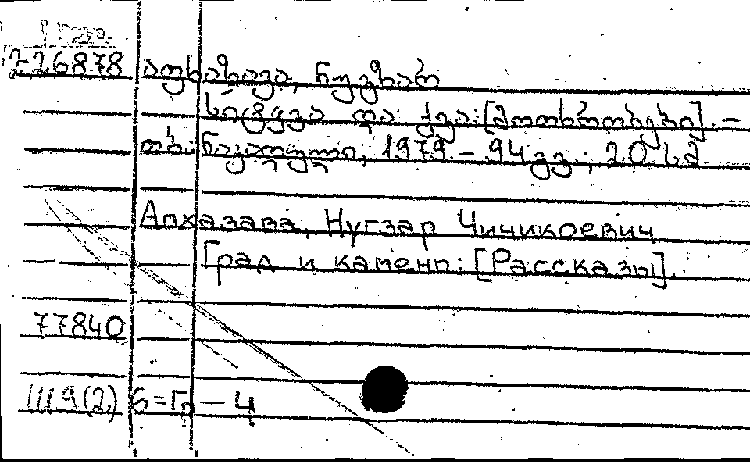 226878 აფხაზავა, ნუგზარ
სეტყვა და ქვა: [მოთხრობები]. –
თბ.: ნაკადული, 1979. – 94 გვ.; 20 სმ
Апхазава, Нугзар Чичикоевич
Град и камень: [Рассказы].
77840
1119(2) 6=Гр – 4